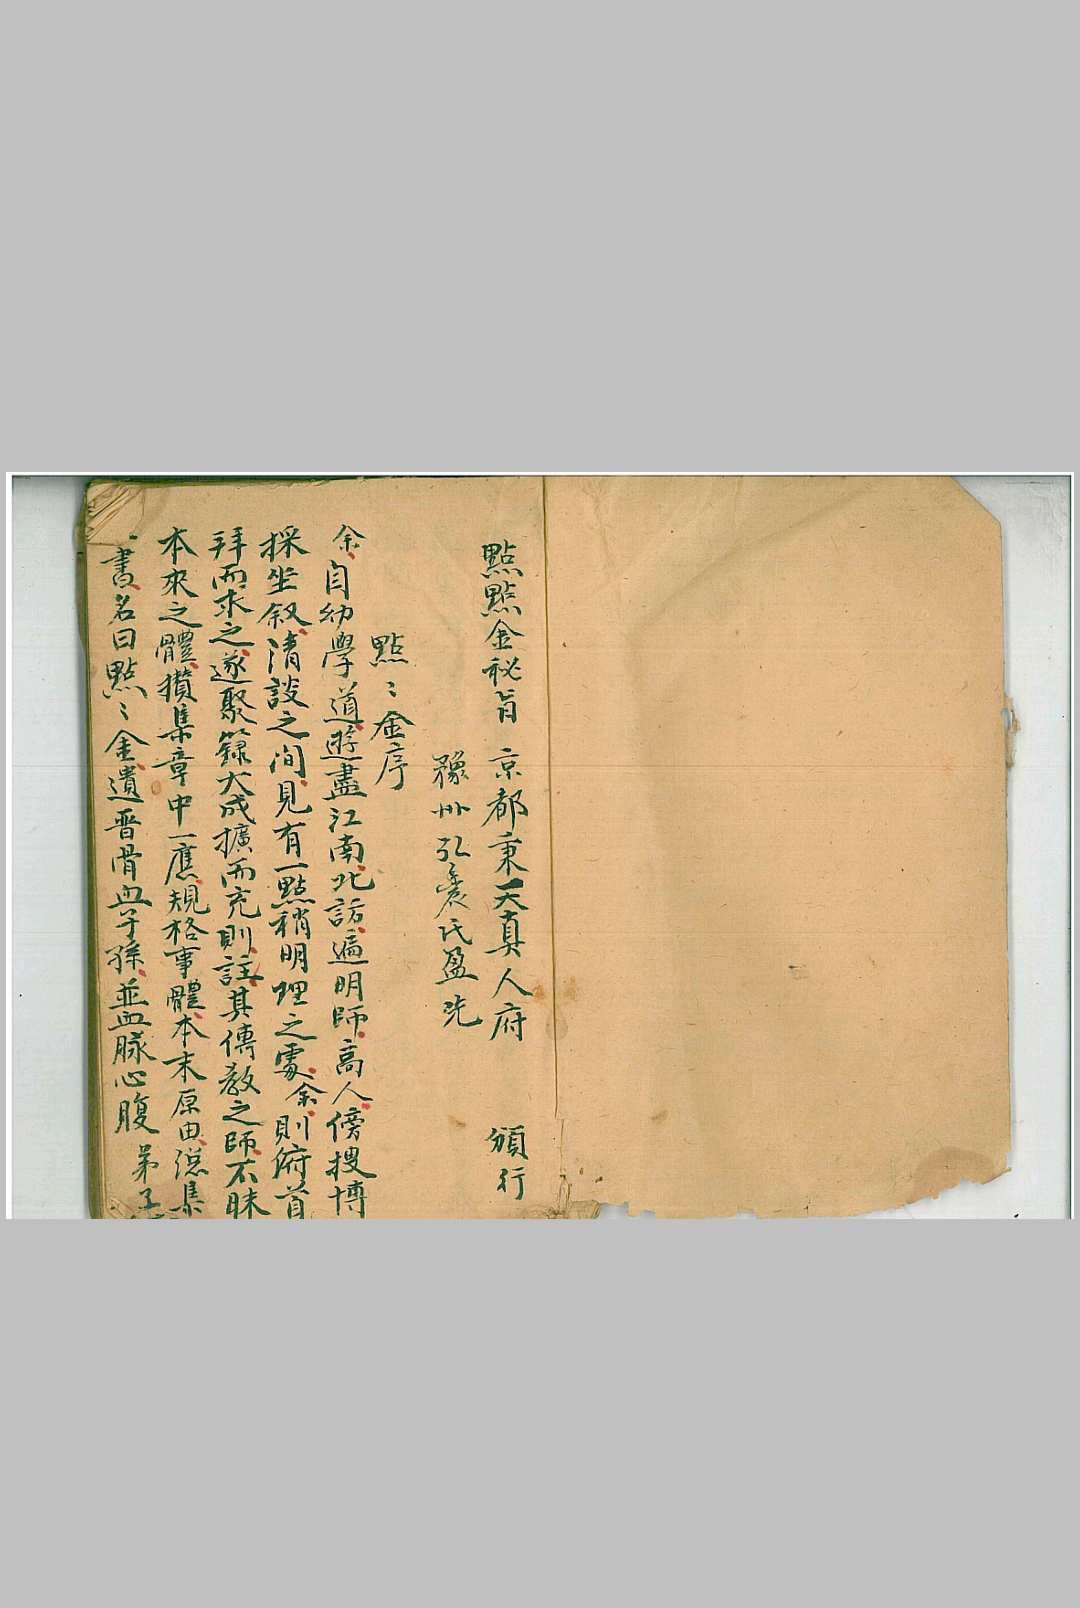 點點金秘旨 京都秉天真人府 頒行
豫州弘農氏盈先
點〻金序
余自幼學道遊盡江南北訪遍明師高人傍搜博
採坐叙清談之間見有一點稍明理之處余則俯首
拜而求之遂聚籙大成擴而充則註其傳教之師不昧
本來之體攢集章中一應規格事體本末原由總集
書名曰點〻金遺晋骨血子孫並血脉心腹 弟子